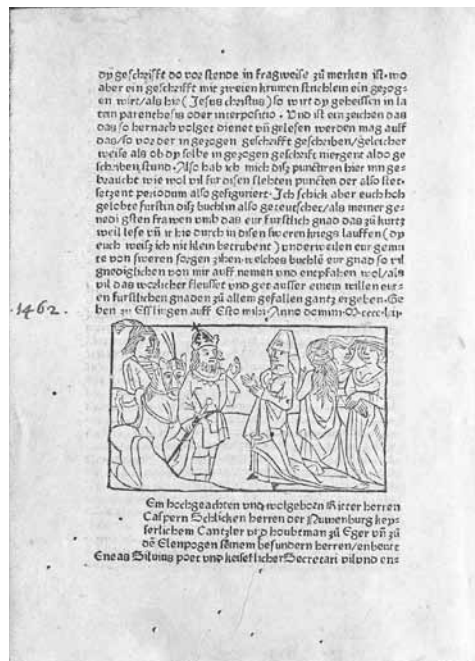 dy geschrifft do vor stende in fragweise zů merken ist. wo
aber ein geschrifft mit zweien krumen strichlein ein gezog-
en wirt/als hie (Jesus christus) so wirt dy geheissen in la
tin parenthesis oder interpositio. Und ist ein zeichen das
das so hernach volget dienet vñ gelesen werden mag auff
das/so vor der in gezogen geschrifft geschriben/geleicher
weise als ob dy selbe in gezogen geschrift niergent aldo ge
schriben stund. Also hab ich mich disz punctren hier inn ge-
braucht wie wol vil fur disen slehten puncten der also stet.
setzent periodum also gefiguriert. Ich schick aber euch hoh
gelobte furstin disz buchlin also geteutschet/als meiner ge-
nedigsten frawen vmb das eur furstlich gnad das zů kurtz
weil lese vñ ir hie durch in disen sweren kriegs lauffen (dy
euch weisz ich nit klein betrubent) underweilen eur gemu
te von sweren sorgen zihen. welches buchle eur gnad so vil
gnediglichen von mir auff nemen und enpfahen wol/als
vil das worlicher fleusset und get ausser einem willen eur-
en furstlichen gnaden zů allem gefallen gantz ergeben. Ge
ben zů Esslingen auff Esto mihi. Anno domini. M cccc lxij.
.1462.
Em hochgeachten und wolgeborn Ritter herren
Caspern Schlicken herren der Nuwenburg key-
serlichem Cantzler und houbtman zů Eger vñ zů
dē Elenpogen seinem besundern herren/enbeutt
Eneas Silvius poet und keiserlicher Secretari vil und en-